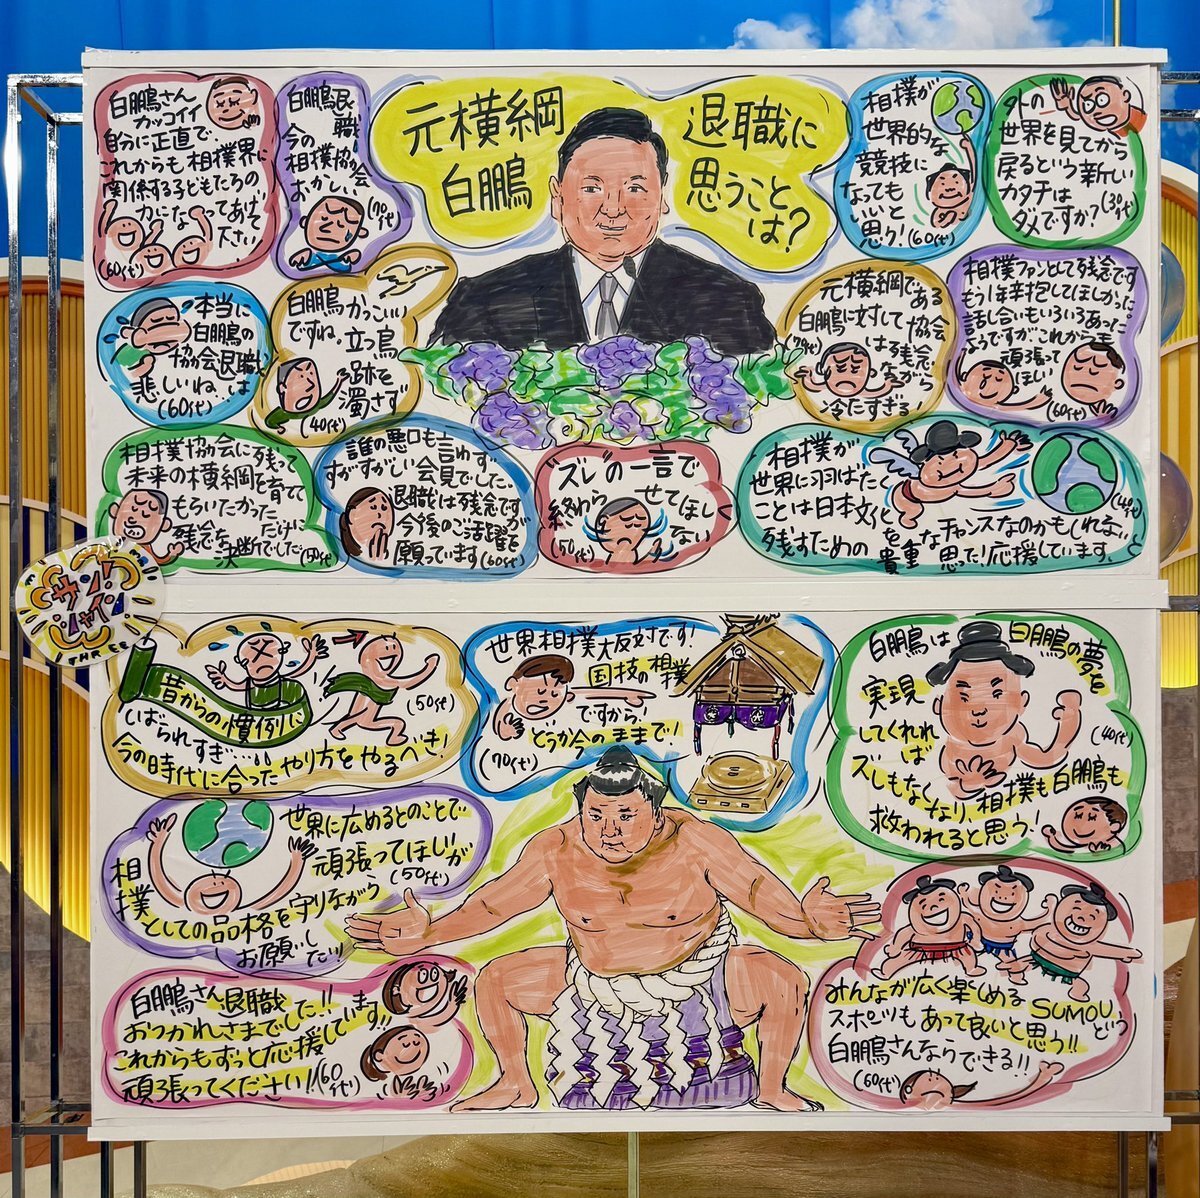 元横綱
白鵬
退職に
思うこと
は?
白鵬さん
カッコイイ
自分に正直で
これからも相撲界に
関係する子どもたちの
力になってあげて
下さい
(60代)
白鵬退職
今の
相撲協会
おかしい
(70代)
相撲が
世界的な
競技に
なっても
いいと
思う!
(60代)
外の
世界を見てから
戻るという新しい
カタチは
ダメですか?
(30代)
本当に
白鵬の
協会退職は
悲しいね…
(60代)
白鵬かっこいい
ですね。立つ鳥
跡を
濁さず
(40代)
元横綱である
白鵬に対して協会
は残念
ながら
冷たすぎる!
(70代)
相撲ファンとして残念です
もう1年辛抱してほしかった
話し合いもいろいろあった
ようですが、これからも
頑張って
ほしい
(60代)
相撲協会に残って
未来の横綱を育てて
もらいたかった
だけに
残念な
決断でした
(50代)
誰の悪口も言わず、
すがすがしい会見でした
退職は残念ですが
今後のご活躍を
願っています
(60代)
"ズレ"の一言で
終わらせてほしく
ない
(50代)
相撲が
世界に羽ばたく
ことは日本文化を
残すための貴重なチャンスなのかもしれない
と思った!応援しています。
(40代)
サン!
シャイン
昔からの慣例に
しばられすぎ…
今の時代に合ったやり方をやるべき!
(50代)
世界相撲大反対です!
国技の相撲
ですから!
どうか今のままで!
(70代)
白鵬は白鵬の夢を
実現
してくれれ
ば
ズレもなくなり、相撲も白鵬も
救われると思う!
(40代)
世界に広めるとのことで
頑張ってほしいが
(50代)
相撲
としての品格を守りながら
お願いし
たい!!
白鵬さん退職
おつかれさまでした!!
これからもずっと応援しています!!
頑張ってください!!
(60代)
みんなが広く楽しめるSUMOUという
スポーツもあって良いと思う!!
白鵬さんならできる!!
(60代)